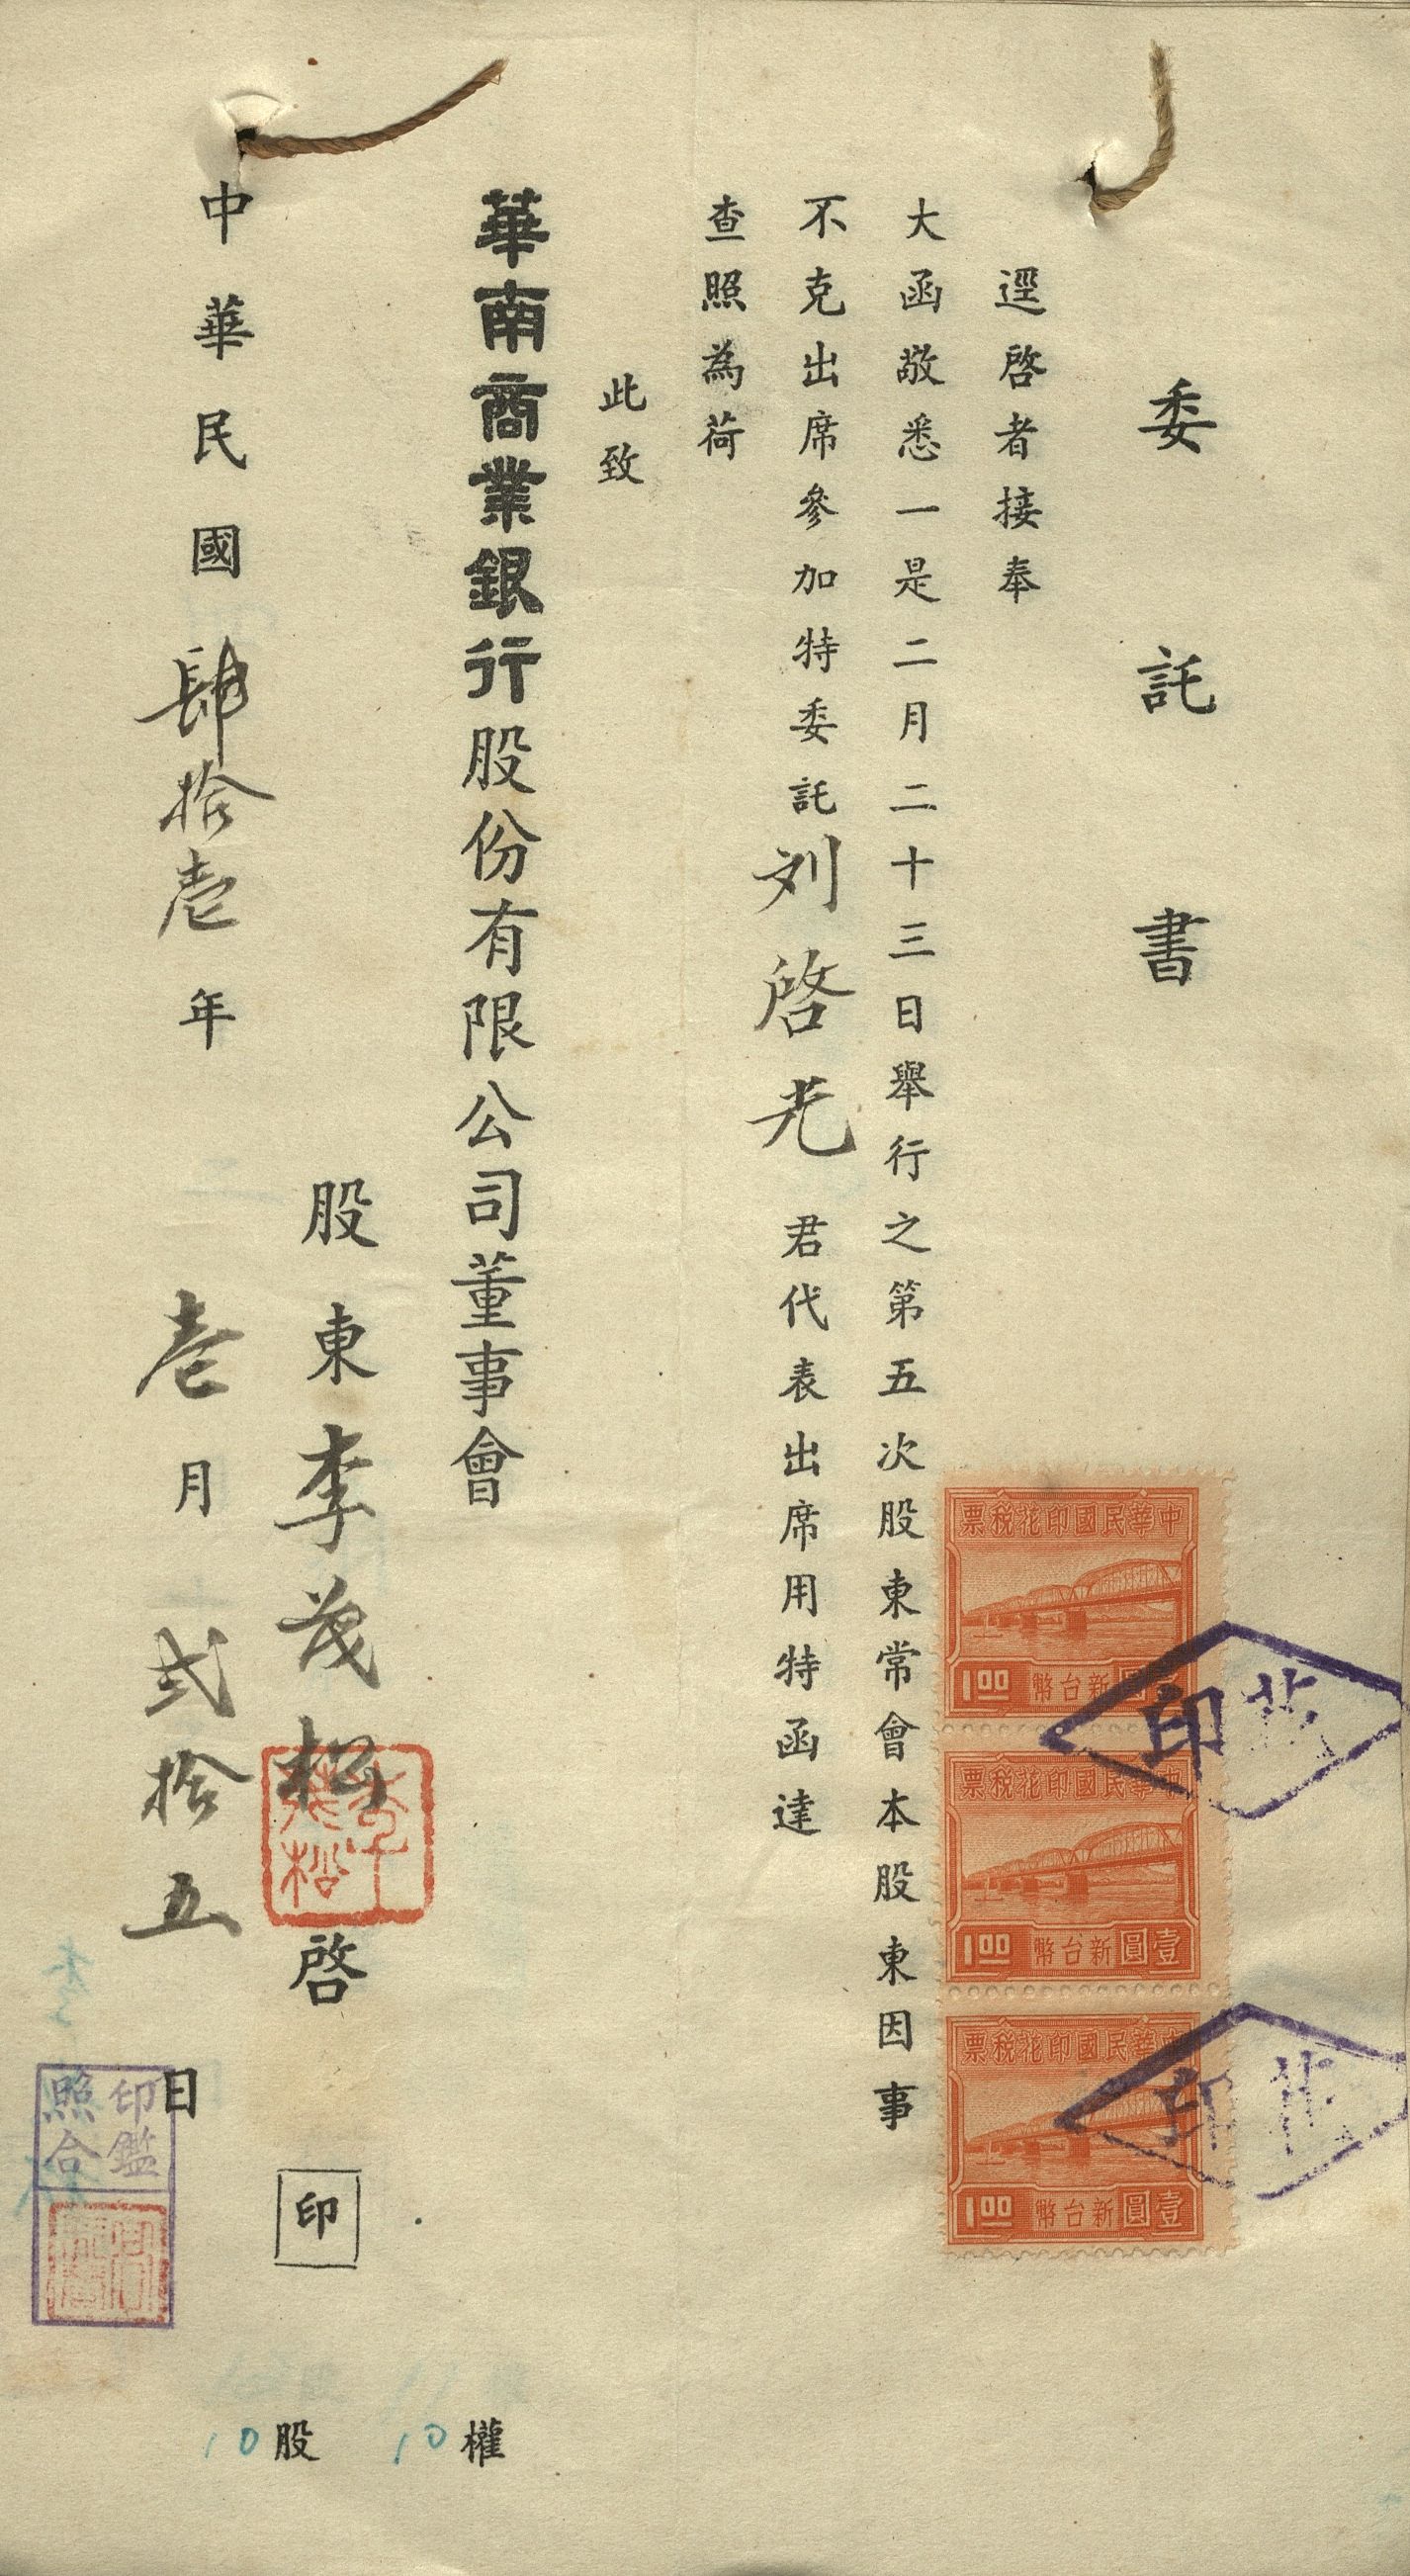 委託書
逕啓者接奉
大函敬悉一是二月二十三日舉行之第五次股東常會本股東因事
不克出席參加特委託刘啓光君代表出席用特函達
查照為荷
此致
華南商業銀行股份有限公司董事會
股東李茂松啓印
中華民國肆拾壹年壹月弍拾五日
10權
10股
中華民國印花稅票
壹圓新台幣1.00
中華民國印花稅票
壹圓新台幣1.00
中華民國印花稅票
壹圓新台幣1.00
花印
花印
印鑑
照合